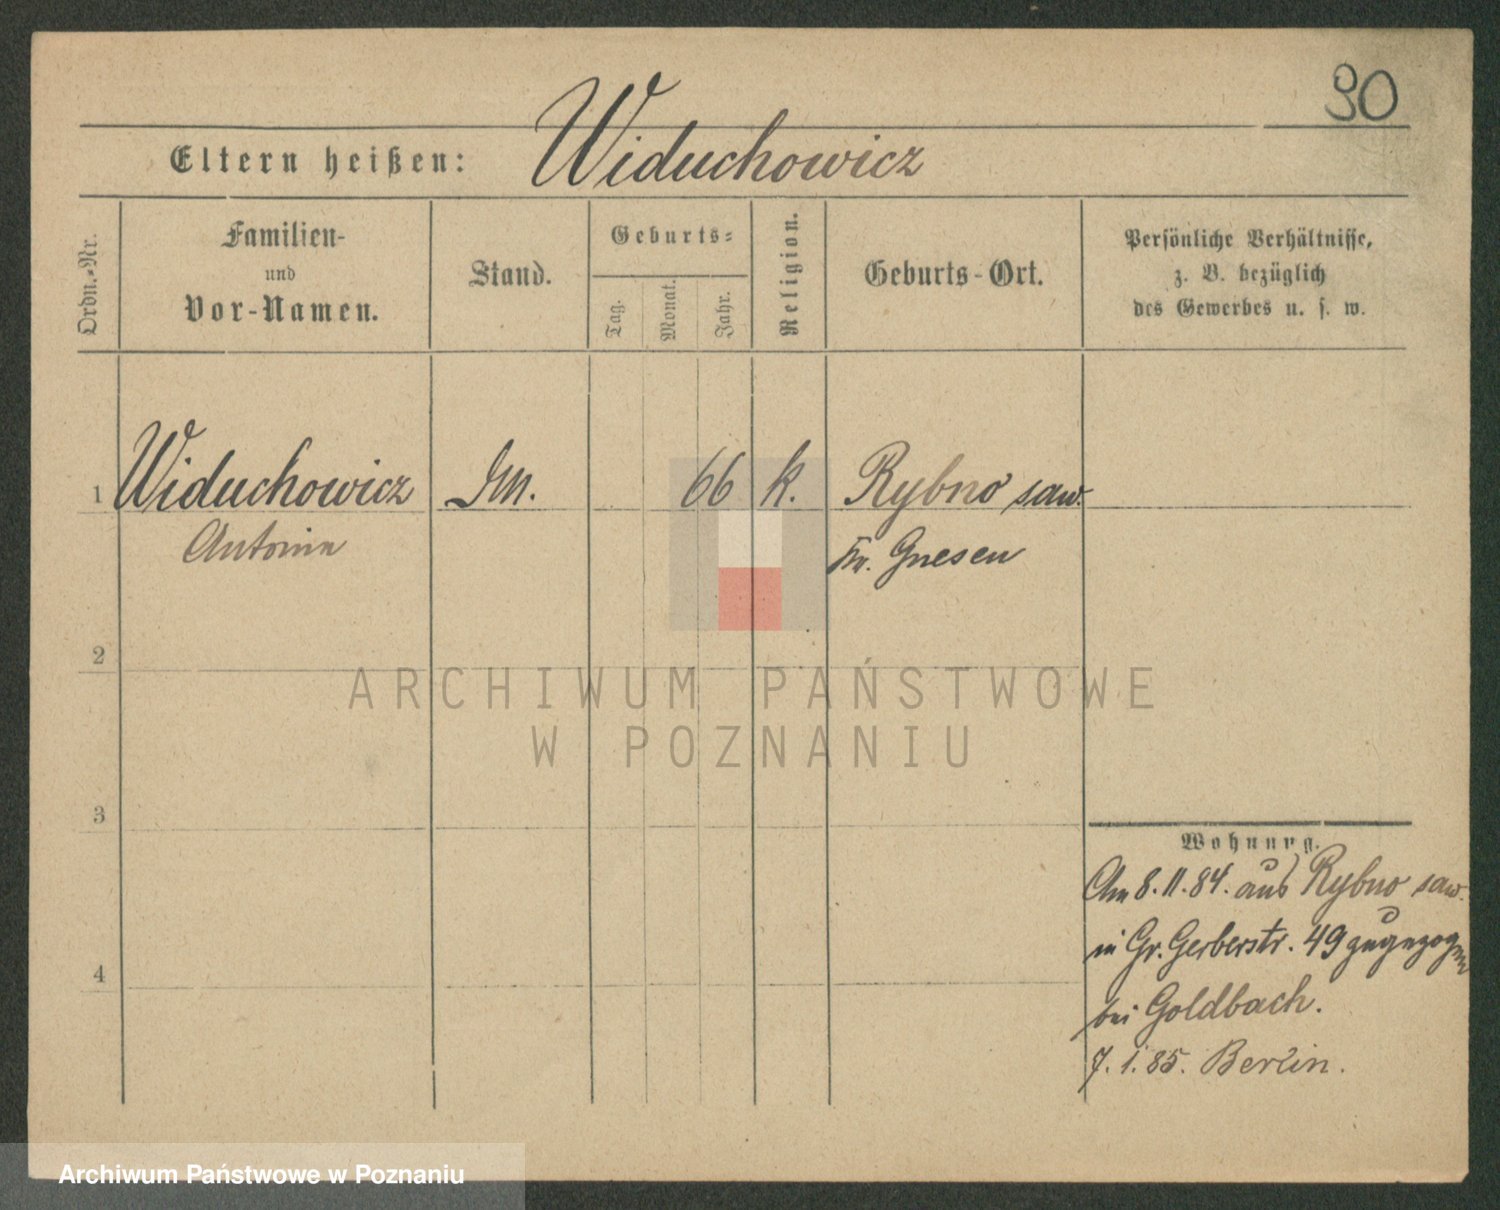 90
Eltern heißen: Widuchowicz
Ordn.-Nr.
Familien-
und
Vor-Namen.
Stand.
Geburts-
Tag.
Monat.
Jahr.
Religion.
Geburts-Ort.
Persönliche Verhältnisse,
z. B. bezüglich
des Gewerbes u. s. w.
1 Widuchowicz 66 k. Rybno saw.
Antonin
Kr. Gnesen
2
ARCHIWUM PAŃSTWOWE
W POZNANIU
3
Wohnung.
Am 8.11.84. aus Rybno saw.
in Gr. Gerberstr. 49 zugezogen
4
bei Goldbach.
7.1.85. Berlin.
Archiwum Państwowe w Poznaniu